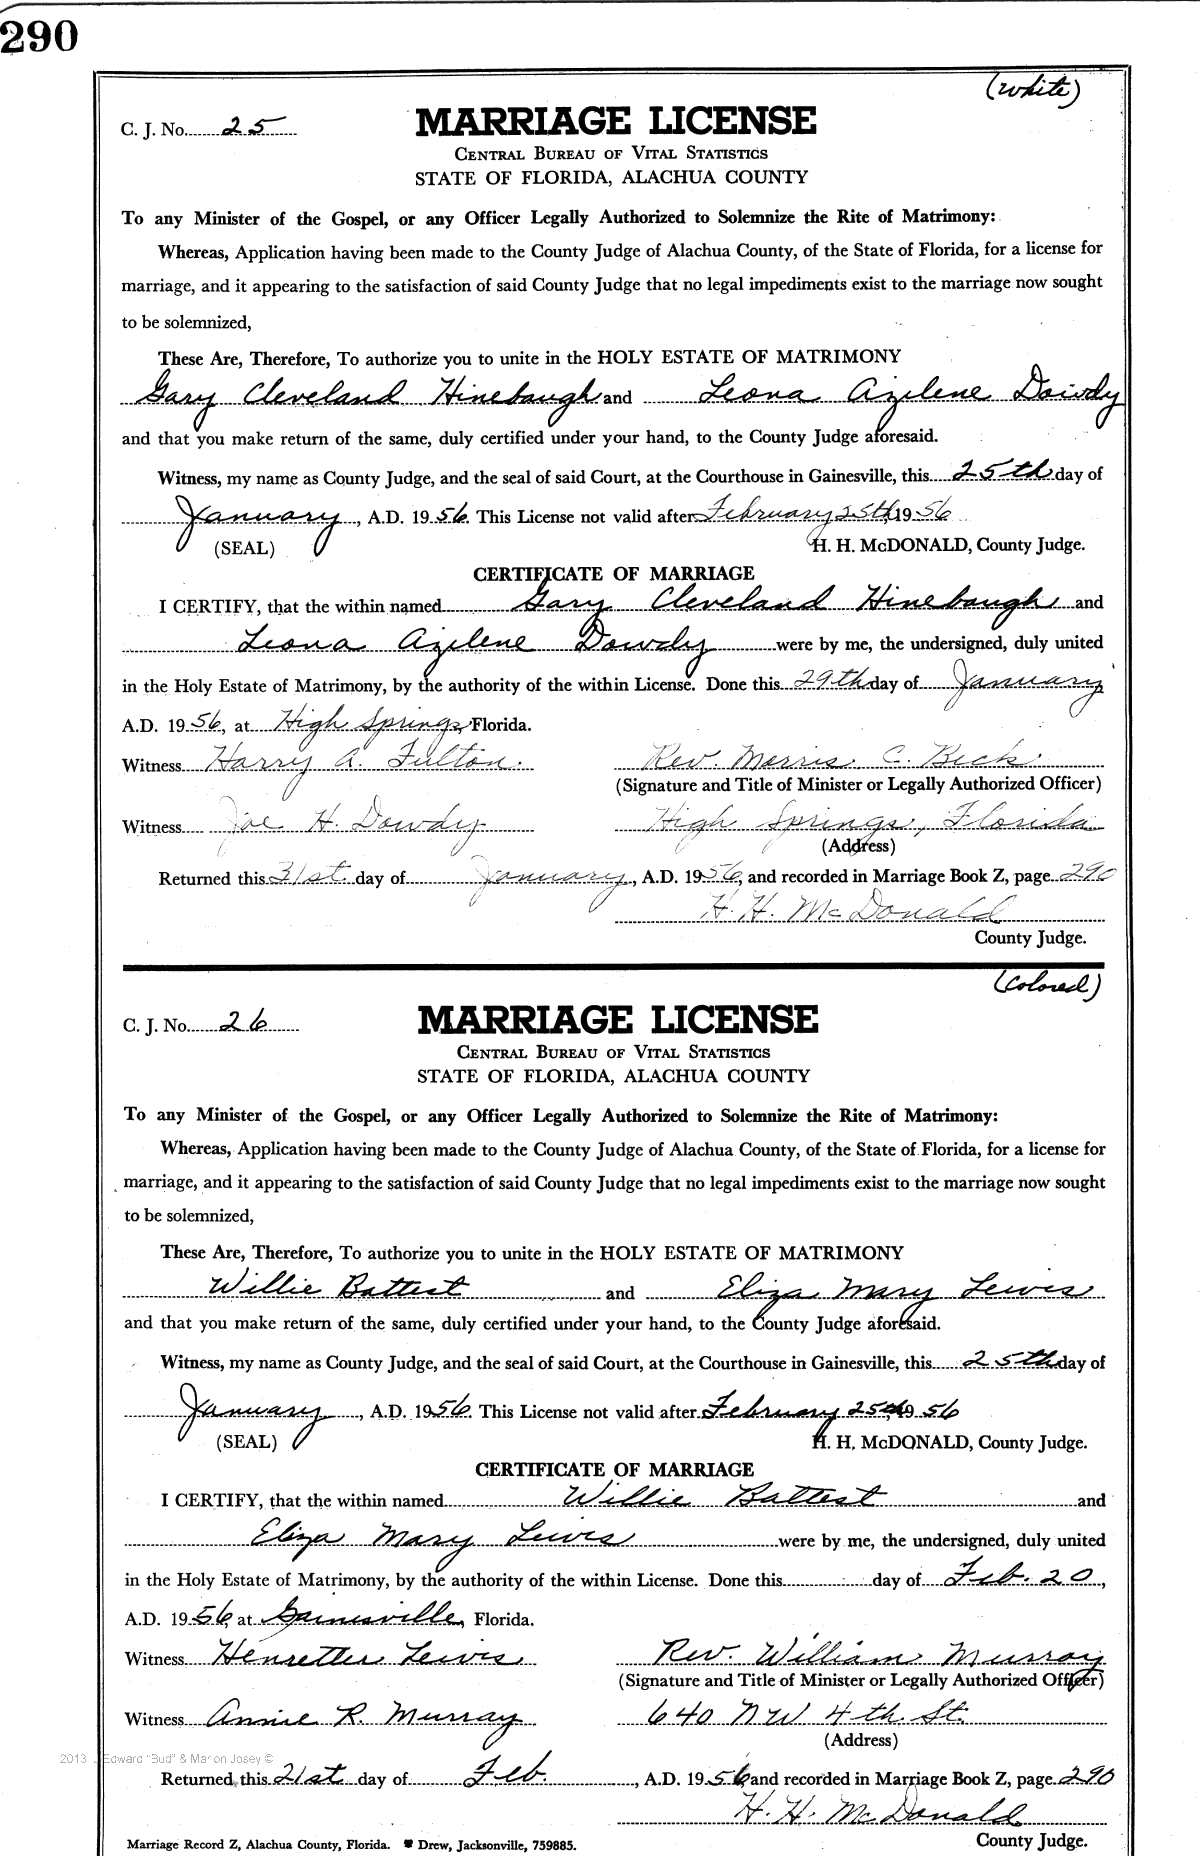 290
(white)
C. J. No. 25
MARRIAGE LICENSE
CENTRAL BUREAU OF VITAL STATISTICS
STATE OF FLORIDA, ALACHUA COUNTY
To any Minister of the Gospel, or any Officer Legally Authorized to Solemnize the Rite of Matrimony:
Whereas, Application having been made to the County Judge of Alachua County, of the State of Florida, for a license for
marriage, and it appearing to the satisfaction of said County Judge that no legal impediments exist to the marriage now sought
to be solemnized,
These Are, Therefore, To authorize you to unite in the HOLY ESTATE OF MATRIMONY
Gary Cleveland Hinebaugh and Leona Azilene Dowdy
and that you make return of the same, duly certified under your hand, to the County Judge aforesaid.
Witness, my name as County Judge, and the seal of said Court, at the Courthouse in Gainesville, this 25th day of
January, A.D. 1956. This License not valid after February 25th, 1956
(SEAL) H. H. McDONALD, County Judge.
CERTIFICATE OF MARRIAGE
I CERTIFY, that the within named Gary Cleveland Hinebaugh and
Leona Azilene Dowdy were by me, the undersigned, duly united
in the Holy Estate of Matrimony, by the authority of the within License. Done this 29th day of January
A.D. 1956, at High Springs, Florida.
Witness Harry A. Fulton. Rev. Morris C. Beck
(Signature and Title of Minister or Legally Authorized Officer)
Witness Joe H. Dowdy High Springs, Florida
(Address)
Returned this 31st. day of January, A.D. 1956, and recorded in Marriage Book Z, page 290
H. H. McDonald
County Judge.
(Colored)
C. J. No. 26
MARRIAGE LICENSE
CENTRAL BUREAU OF VITAL STATISTICS
STATE OF FLORIDA, ALACHUA COUNTY
To any Minister of the Gospel, or any Officer Legally Authorized to Solemnize the Rite of Matrimony:
Whereas, Application having been made to the County Judge of Alachua County, of the State of Florida, for a license for
marriage, and it appearing to the satisfaction of said County Judge that no legal impediments exist to the marriage now sought
to be solemnized,
These Are, Therefore, To authorize you to unite in the HOLY ESTATE OF MATRIMONY
Willie Battest and Eliza Mary Lewis
and that you make return of the same, duly certified under your hand, to the County Judge aforesaid.
Witness, my name as County Judge, and the seal of said Court, at the Courthouse in Gainesville, this 25th day of
January, A.D. 1956. This License not valid after February 25th, 1956
(SEAL) H. H. McDONALD, County Judge.
CERTIFICATE OF MARRIAGE
I CERTIFY, that the within named Willie Battest and
Eliza Mary Lewis were by me, the undersigned, duly united
in the Holy Estate of Matrimony, by the authority of the within License. Done this day of Feb. 20,
A.D. 1956, at Gainesville, Florida.
Witness Henretter Lewis Rev. William Murray
(Signature and Title of Minister or Legally Authorized Officer)
Witness Annie R. Murray 640 NW 4th. St.
(Address)
2013 Edward "Bud" & Marion Josey ©
Returned this 21st day of Feb., A.D. 1956 and recorded in Marriage Book Z, page 290
H. H. McDonald
County Judge.
Marriage Record Z, Alachua County, Florida. Drew, Jacksonville, 759885.